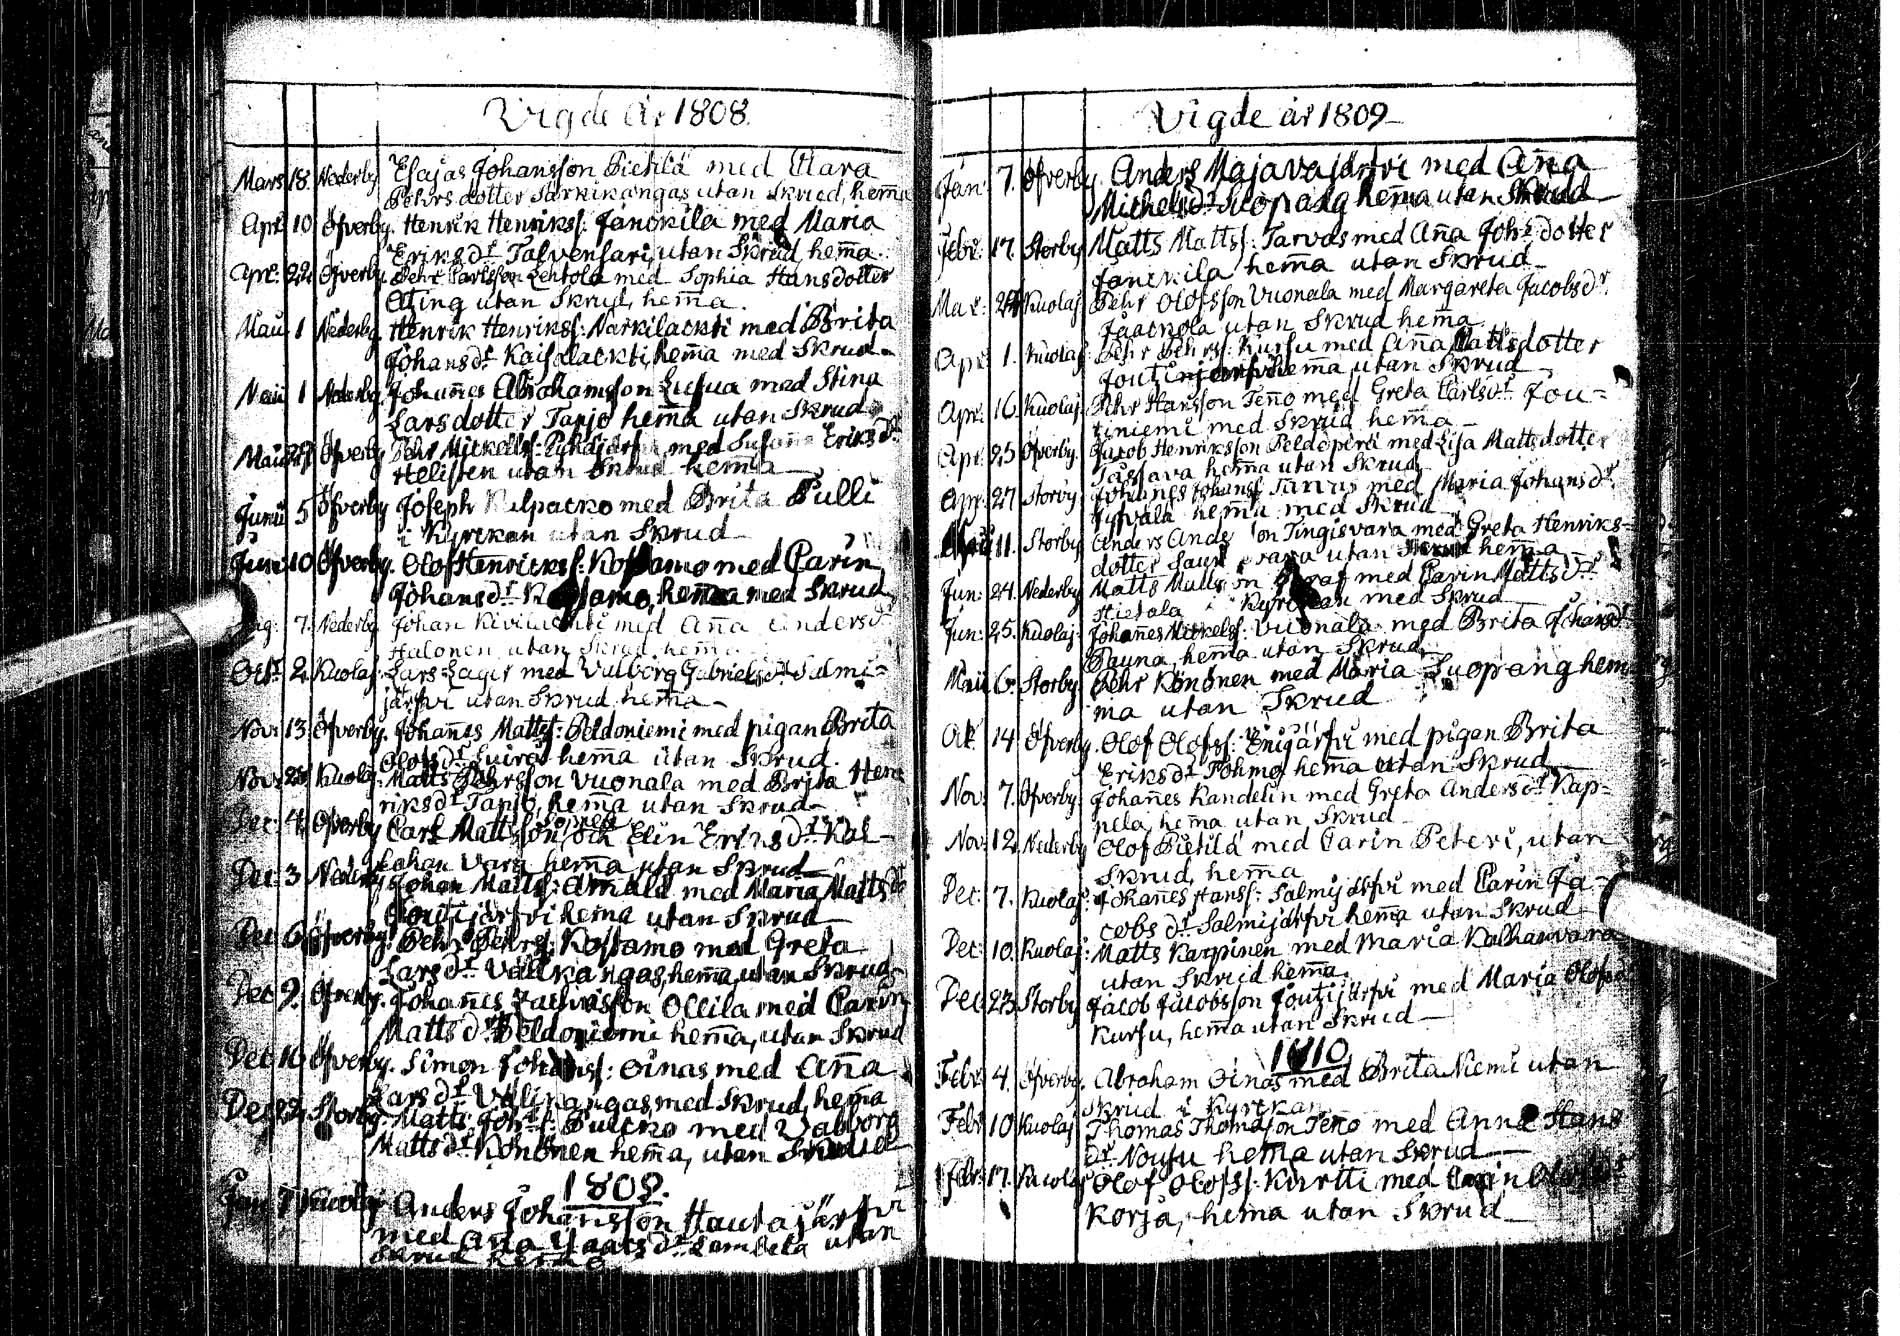 Vigde år 1808.
Mars 18. Nederby Esajas Johansson Pietilä med Clara
Pehrsdotter Särkikangas utan Skrud, hema
Apr: 10 Öfverby. Henrik Henrikss: Janckila med Maria
Eriksdr Talvensari, utan Skrud, hema.
Apr: 22. Öfverby Pehr Carlsson Lehtola med Sophia Hansdotter
Ating utan Skrud, hema.
Maii 1 Nederby Henrik Henrikss: Närkilackti med Brita
Johansdr Kaisalackti, hema med Skrud
Maii 1 Nederby Johañes Abrahamsson Lusua med Stina
Larsdotter Tapio hema utan Skrud
Maii 29 Öfverby Pehr Mickelss: Pyhäjärfvi med Susaña Eriksdr
Helisten utan Skrud hema
Junii 5 Öfverby Joseph Kulpacko med Brita Pulli
i Kyrckan utan Skrud
Junii 10 Öfverby. Olof Henrickss: Kossamo med Carin
Johansdr hema med Skrud
7. Nederby Johan med Aña Andersdr
Halonen utan Skrud hema
Octr 2. Kuolaj: Lars Lagit med Wulborg Gabrielsdr Salmi-
järfvi utan Skrud, hema
Nov: 13 Öfverby. Johañes Mattss: Peldoniemi med pigan Brita
Olofsdr Luiro hema utan Skrud.
Nov: 23 Kuolaj: Matts Pehrsson Vuonala med Brita Hen-
riksdr Tapio, hema utan Skrud
Dec: 4. Öfverby Carl Mattsson Soppela och Elin Eriksdr Kal-
kahan Vara hema utan Skrud
Dec: 3 Nederby Johan Mattss: Ämälä med Maria Mattsdr
Joutijärfvi hema utan Skrud
Dec 6 Öfverby. Pehr Pehrss: Kossamo med Greta
Larsdr Vällkangas, hema, utan Skrud
Dec 9. Öfverby. Johañes Zachrisson Ollila med Carin
Mattsdr Peldoniemi hema, utan Skrud
Dec 16 Öfverby. Simon Johanss: Oinas med Aña
Larsdr Vällkangas med Skrud, hema
Dec 29. Storby. Matts Johss: Pulcko med Valborg
Mattsdr Könönen hema, utan Skrud
1809.
Jan 7 Kuolaj Anders Johansson Hautajärfvi
med Aña Isacsdr Lambela utan
Skrud hema
Vigde år 1809
Jan: 7. Öfverby. Anders Majavajärfvi med Aña
Michelsdr Suopang hema utan Skrud
Febr: 17. Storby Matts Mattss: Tarvas med Aña Johs dotter
Janckila hema utan Skrud
Mar: 24 Kuolaj: Pehr Olofsson Vuonala med Margareta Jacobsdr.
Jaackola utan Skrud hema.
Apr: 1. Kuolaj: Pehr Pehrss: Kursu med Aña Mattsdotter
Joutzijärfvi hema utan Skrud
Apr: 16. Kuolaj: Pehr Hansson Teño med Greta Carlsdr Jou-
tiniemi med Skrud hema
Apr: 23 Öfverby. Jacob Henriksson Peldoperä med Lisa Mattsdotter
Tassava hema utan Skrud
Apr: 27 Storby Johañes Johanss Tarvas med Maria Johansdr
hema med Skrud
Maii 11. Storby Anders Andersson Tingisvara med Greta Henriks-
dotter utan Skrud hema
Jun: 24. Nederby Matts Mattsson med Carin Mattsdr
Hietala i Kyrckan med Skrud
Jun: 25. Kuolaj: Johañes Mickelss: Vuonala med Brita Johansdr
Pauna, hema utan Skrud
Maii 6. Storby. Pehr Könönen med Maria Suopang hem
ma utan Skrud
Oct: 14 Öfverby. Olof Olofss: Enijärfvi med pigan Brita
Eriksdr Pöhmö hema utan Skrud
Nov: 7. Öfverby: Johañes Kandelin med Greta Andersdr Kap-
pela, hema utan Skrud
Nov: 12. Nederby Olof Pietilä med Carin Peteri, utan
Skrud, hema
Dec: 7. Kuolaj: Johañes Hanss: Salmijärfvi med Carin Ja-
cobs dr Salmijärfvi hema utan Skrud
Dec: 10. Kuolaj: Matts Karpinen med Maria Kalhanvara
utan Skrud hema.
Dec 23 Storby Jacob Jacobsson Joutzijärfvi med Maria Olofsdr
Kursu, hema utan Skrud
1810
Febr: 4. Öfverby. Abraham Oinas med Brita Niemi utan
Skrud i Kyrckan
Febr 10 Kuolaj Thomas Thomasson Teño med Anna Hans
dr. Nousu hema utan Skrud
Febr: 17. Kuolaj Olof Olofss: Kurtti med Carin Olofsdr
Korja, hema utan Skrud